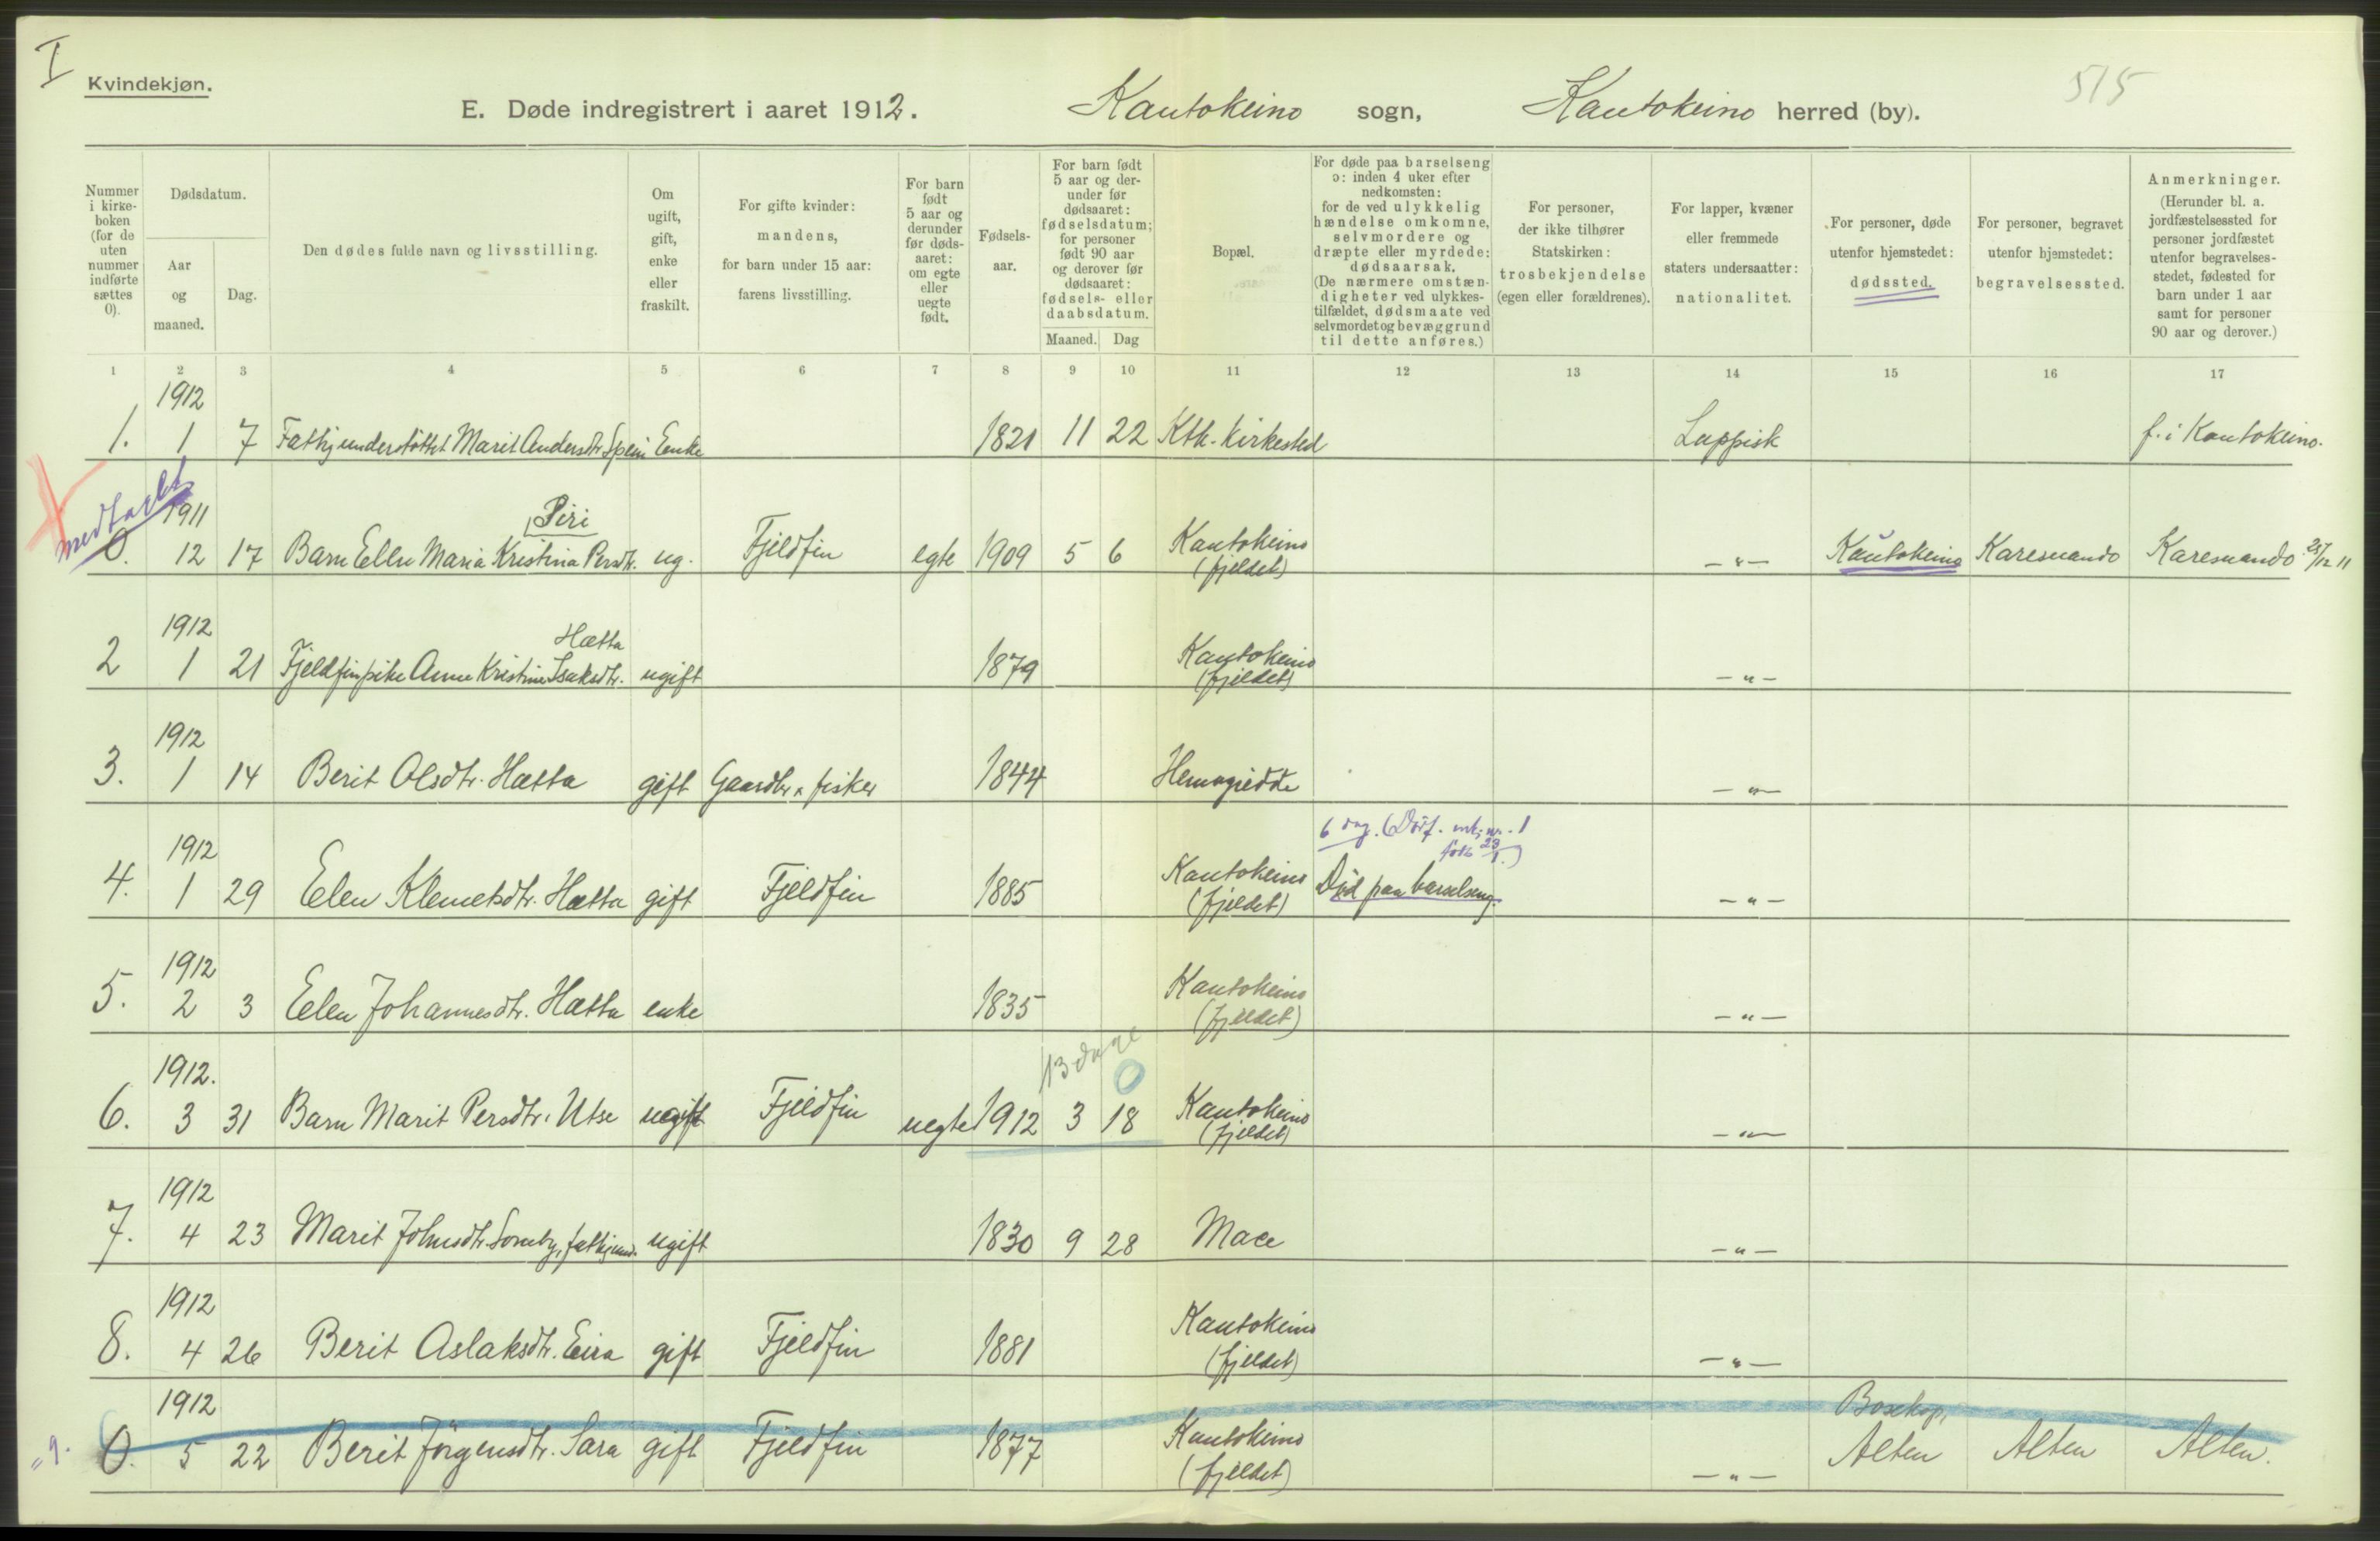 I
Kvindekjøn.
515
E. Døde indregistrert i aaret 1912. Kautokeino sogn, Kautokeino herred (by).
Nummer i kirkeboken (for de uten nummer indførte sættes 0).
Dødsdatum.
Aar og maaned.
Dag.
Den dødes fulde navn og livsstilling.
Om ugift, gift, enke eller fraskilt.
For gifte kvinder: mandens, for barn under 15 aar: farens livsstilling.
For barn født 5 aar og derunder før dødsaaret: om egte eller uegte født.
Fødselsaar.
For barn født 5 aar og derunder før dødsaaret: fødselsdatum; for personer født 90 aar og derover før dødsaaret: fødsels- eller daabsdatum.
Maaned. Dag
Bopæl.
For døde paa barselseng ɔ: inden 4 uker efter nedkomsten: for de ved ulykkelig hændelse omkomne, selvmordere og dræpte eller myrdede: dødsaarsak. (De nærmere omstændigheter ved ulykkestilfældet, dødsmaate ved selvmordet og bevæggrund til dette anføres.)
For personer, der ikke tilhører Statskirken: trosbekjendelse (egen eller forældrenes).
For lapper, kvæner eller fremmede staters undersaatter: nationalitet.
For personer, døde utenfor hjemstedet: dødssted.
For personer, begravet utenfor hjemstedet: begravelsessted.
Anmerkninger. (Herunder bl. a. jordfæstelsessted for personer jordfæstet utenfor begravelsesstedet, fødested for barn under 1 aar samt for personer 90 aar og derover.)
1 2 3 4 5 6 7 8 9 10 11 12 13 14 15 16 17
1912
1. 1 7 Fattigunderstöttet Marit Andersdtr. Spein Enke 1821 11 22 Ktk. Kirkested Lappisk f. i Kautokeino.
medtaget
1911 Piri
0. 12 17 Barn Ellen Maria Kristina Persdtr. ug. Fjeldfin egte 1909 5 6 Kautokeino (fjeldet) — " — Kautokeino Karesuando Karesuando 28/12 11
1912 Hætta
2 1 21 Fjeldfinpike Anne Kristine Isaksdtr. ugift 1879 Kautokeino (fjeldet) — " —
1912
3. 1 14 Berit Olsdtr. Hætta gift Gaardbr. & fisker 1844 — " —
6 dag.
1912
4. 1 29 Elen Klemetsdtr. Hætta gift Fjeldfin 1885 Kautokeino (fjeldet) Död paa barselseng. — " —
1912
5. 2 3 Elen Johannesdtr. Hætta enke 1835 Kautokeino (fjeldet) — " —
13 dage
0
1912.
6. 3 31 Barn Marit Persdtr. Utse ugift Fjeldfin uegte 1912 3 18 Kautokeino (fjeldet) — " —
1912
7. 4 23 Marit Johnsdtr. Somby, fattigund. ugift 1830 9 28 — " —
1912
8. 4 26 Berit Aslaksdtr. Eira gift Fjeldfin 1881 Kautokeino (fjeldet) — " —
1912 Bosekop,
" 9. 0. 5 22 Berit Jörgensdtr. Sara gift Fjeldfin 1877 Kautokeino (fjeldet) — " — Alten Alten Alten.